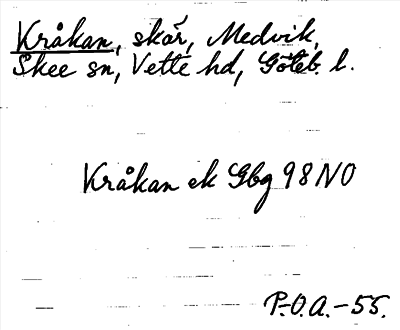 Kråkan, skär, Medvik,
Skee sn, Vette hd, Göteb. l.
Kråkan ek Gbg 98 NO
P.O.A.-55.